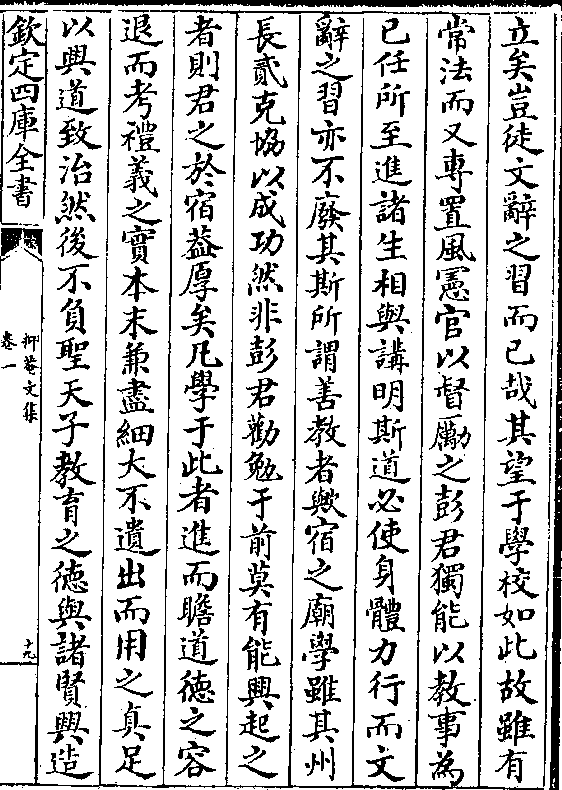 立矣豈徒文辭之習而已哉其望于學校如此故雖有
常法而又專置風憲官以督勵之彭君獨能以教事為
己任所至進諸生相與講明斯道必使身體力行而文
辭之習亦不廢其斯所謂善教者歟宿之廟學雖其州
長貳克協以成功然非彭君勸勉于前莫有能興起之
者則君之於宿葢厚矣凡學于此者進而瞻道德之容
退而考禮義之實本末兼盡細大不遺出而用之真足
以興道致治然後不負聖天子教育之德與諸賢興造
欽定四庫全書
抑菴文集
卷一
十九